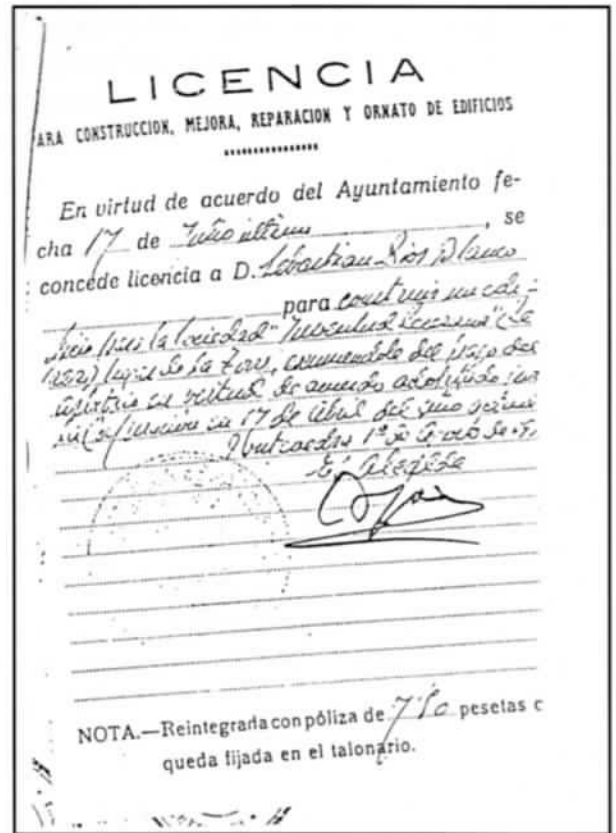 LICENCIA
ARA CONSTRUCCION, MEJORA, REPARACION Y ORNATO DE EDIFICIOS
En virtud de acuerdo del Ayuntamiento fe-
cha 17 de Julio último, se
concede licencia a D. Sebastian Rios Blanco
para construir un edi-
ficio para la Sociedad "Juventud
lugar de la Torre, del pago del
en virtud de acuerdo adoptado
en 17 de Abril del año
1º de
El Alcalde
NOTA.—Reintegrada con póliza de 7'50 pesetas c
queda fijada en el talonario.